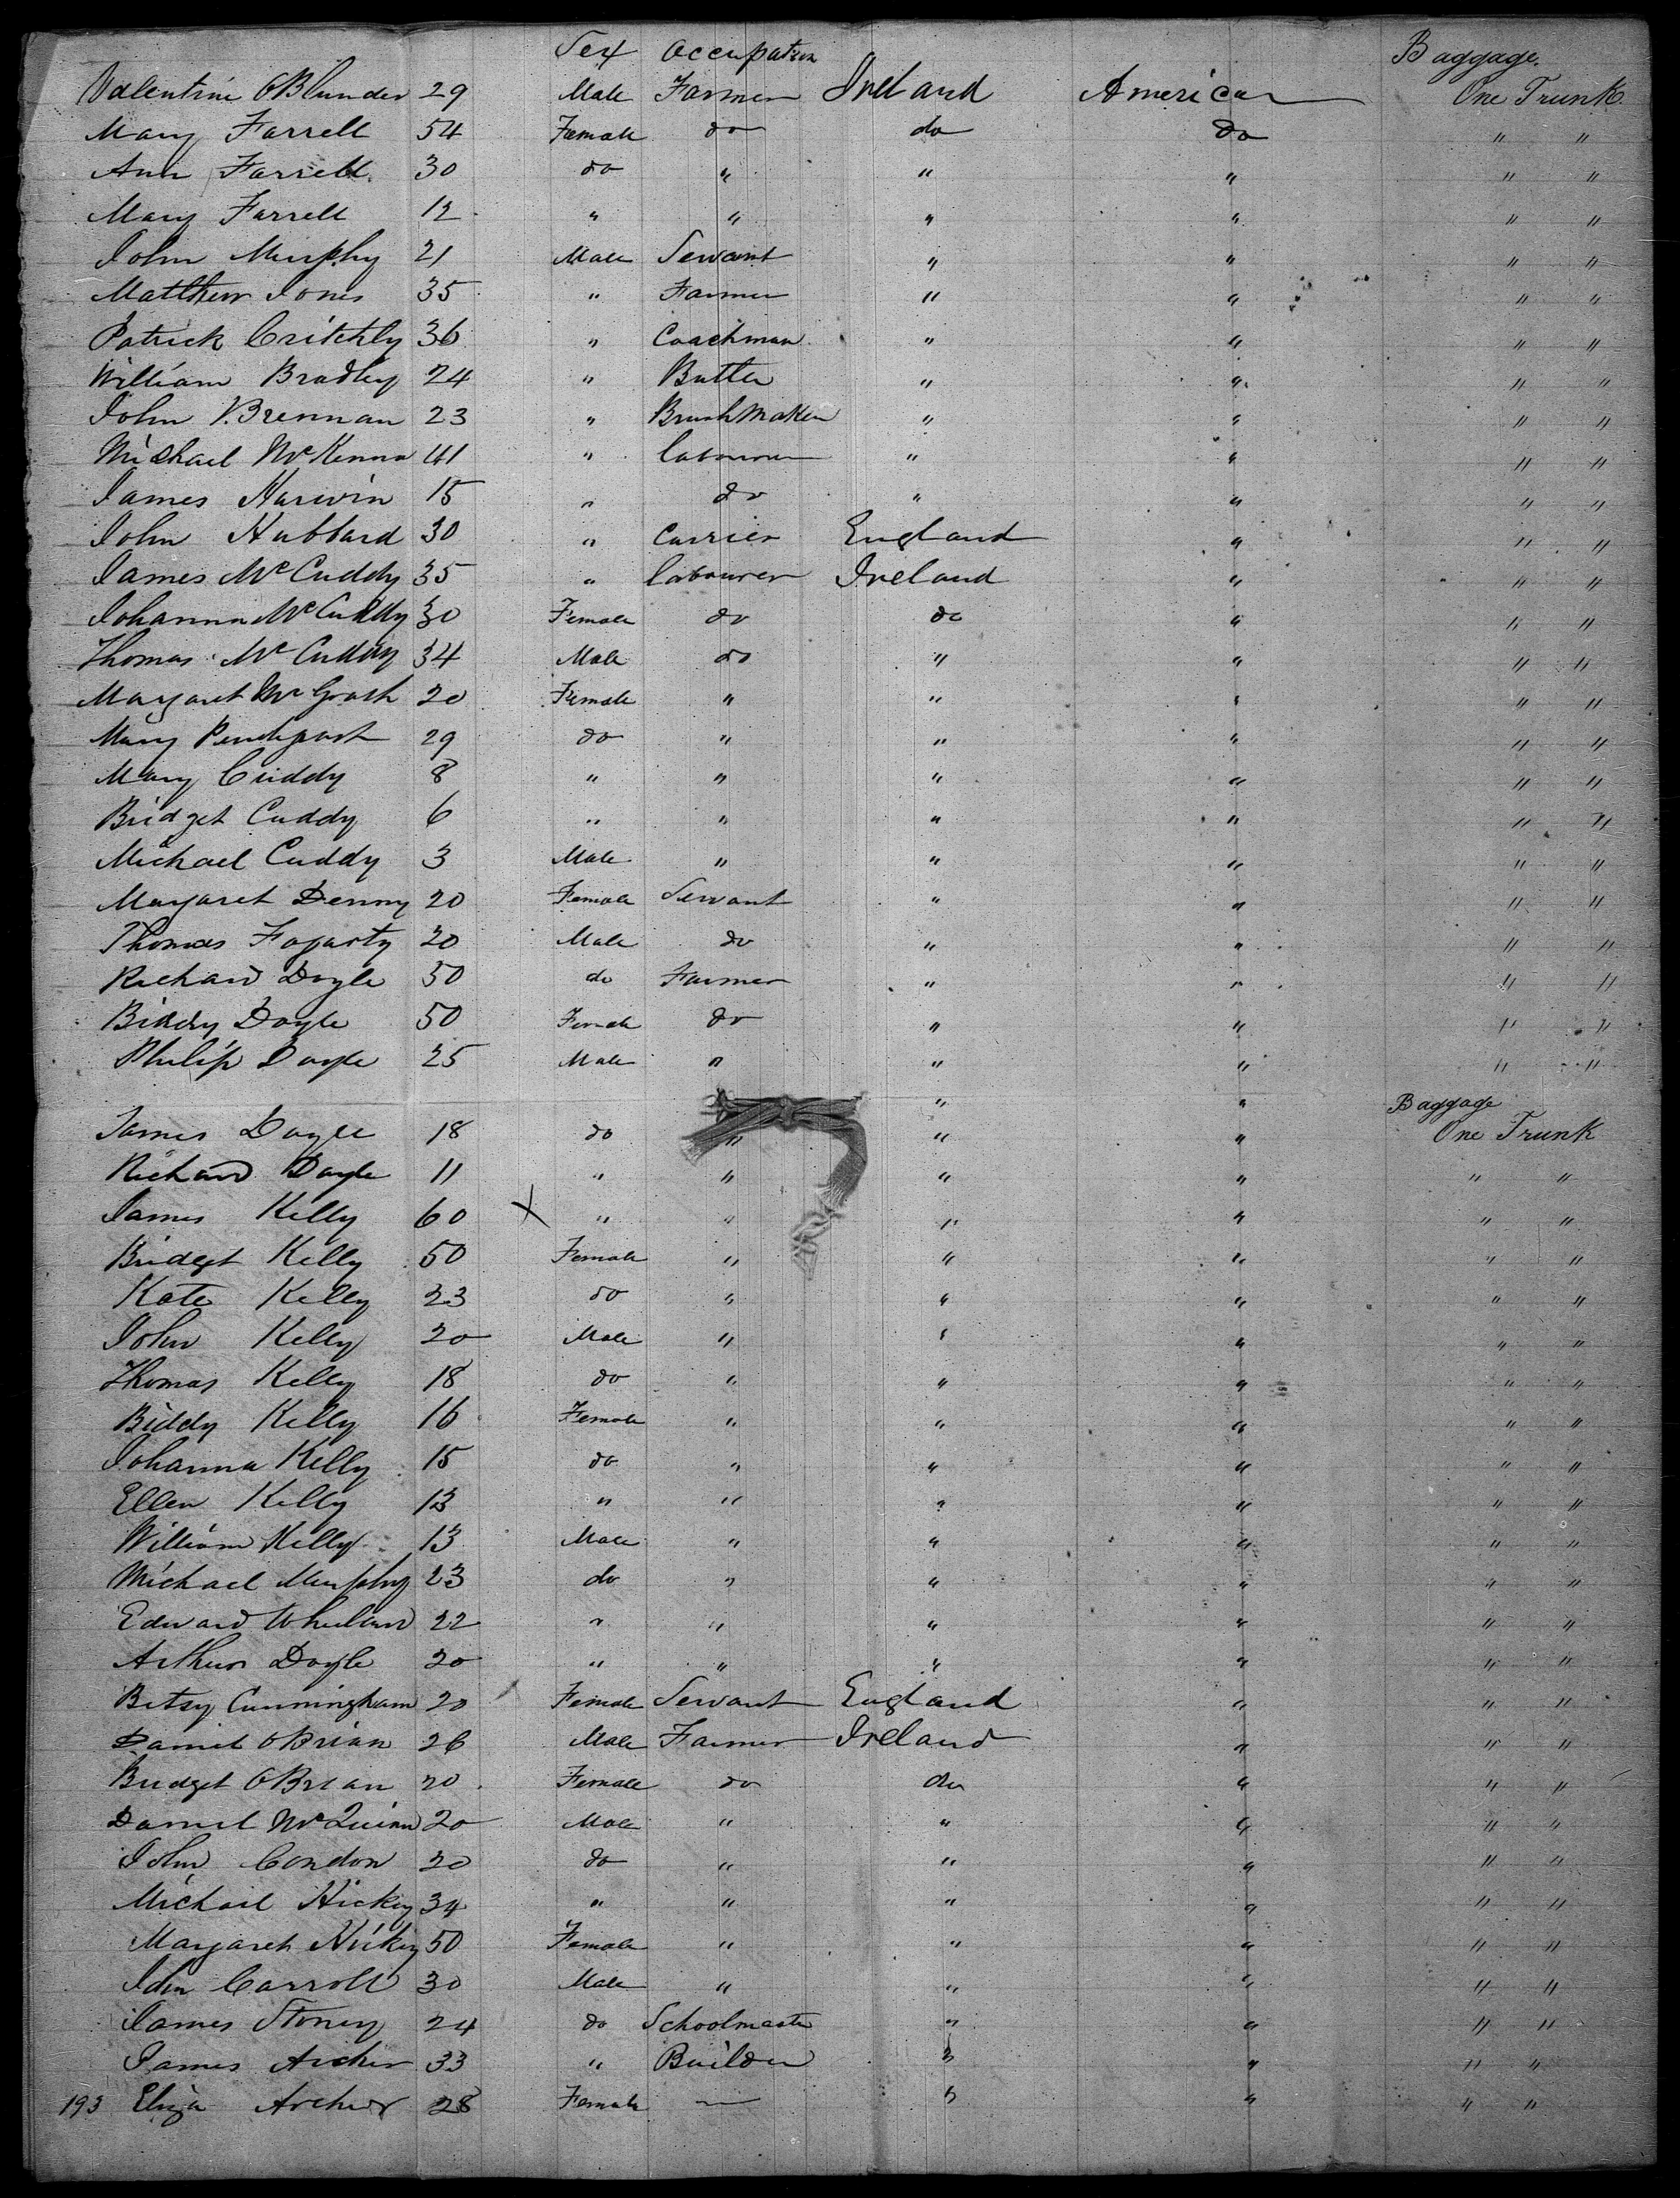 Sex Occupation Baggage.
Valentine OBlunder 29 Male Farmer Ireland American One Trunk
Mary Farrell 54 Female do do do " "
Ann Farrell 30 do " " " " "
Mary Farrell 12 " " " " " "
John Murphy 21 Male Servant " " " "
Matthew Jones 35 " Farmer " " " "
Patrick Critchly 36 " Coachman " " " "
William Bradley 24 " Butler " " " "
John Brennan 23 " BrushMaker " " " "
Michael McKenna 41 " Labourer " " " "
James Harwin 15 " do " " " "
John Hubbard 30 " Currier England " " "
James McCuddy 35 " Labourer Ireland " " "
Johanna McCuddy 30 Female do do " " "
Thomas McCuddy 34 Male do " " " "
Margaret McGrath 20 Female " " " " "
Mary 29 do " " " " "
Mary Cuddy 8 " " " " " "
Bridget Cuddy 6 " " " " " "
Michael Cuddy 3 Male " " " " "
Margaret Denny 20 Female Servant " " " "
Thomas Fogarty 20 Male do " " " "
Richard Doyle 50 do Farmer " " " "
Biddy Doyle 50 Female do " " " "
Philip Doyle 25 Male " " " " "
" " Baggage
James Doyle 18 do " " " One Trunk
Richard Doyle 11 " " " " " "
James Kelly 60 X " " " " " "
Bridget Kelly 50 Female " " " " "
Kate Kelly 23 do " " " " "
John Kelly 20 Male " " " " "
Thomas Kelly 18 do " " " " "
Biddy Kelly 16 Female " " " " "
Johanna Kelly 15 do " " " " "
Ellen Kelly 13 " " " " " "
William Kelly 13 Male " " " " "
Michael Murphy 23 do " " " " "
Edward Wheelan 22 " " " " " "
Arthur Doyle 20 " " " " " "
Betsy Cunningham 20 Female Servant England " " "
Daniel OBrian 26 Male Farmer Ireland " " "
Bridget OBrian 20 Female do do " " "
Daniel McQuinn 20 Male " " " " "
John Condon 20 do " " " " "
Michael Hickey 34 " " " " " "
Margaret Hickey 50 Female " " " " "
John Carroll 30 Male " " " " "
James Stoney 24 do Schoolmaster " " " "
James Archer 33 " Builder " " " "
193 Eliza Archer 28 Female — " " " "